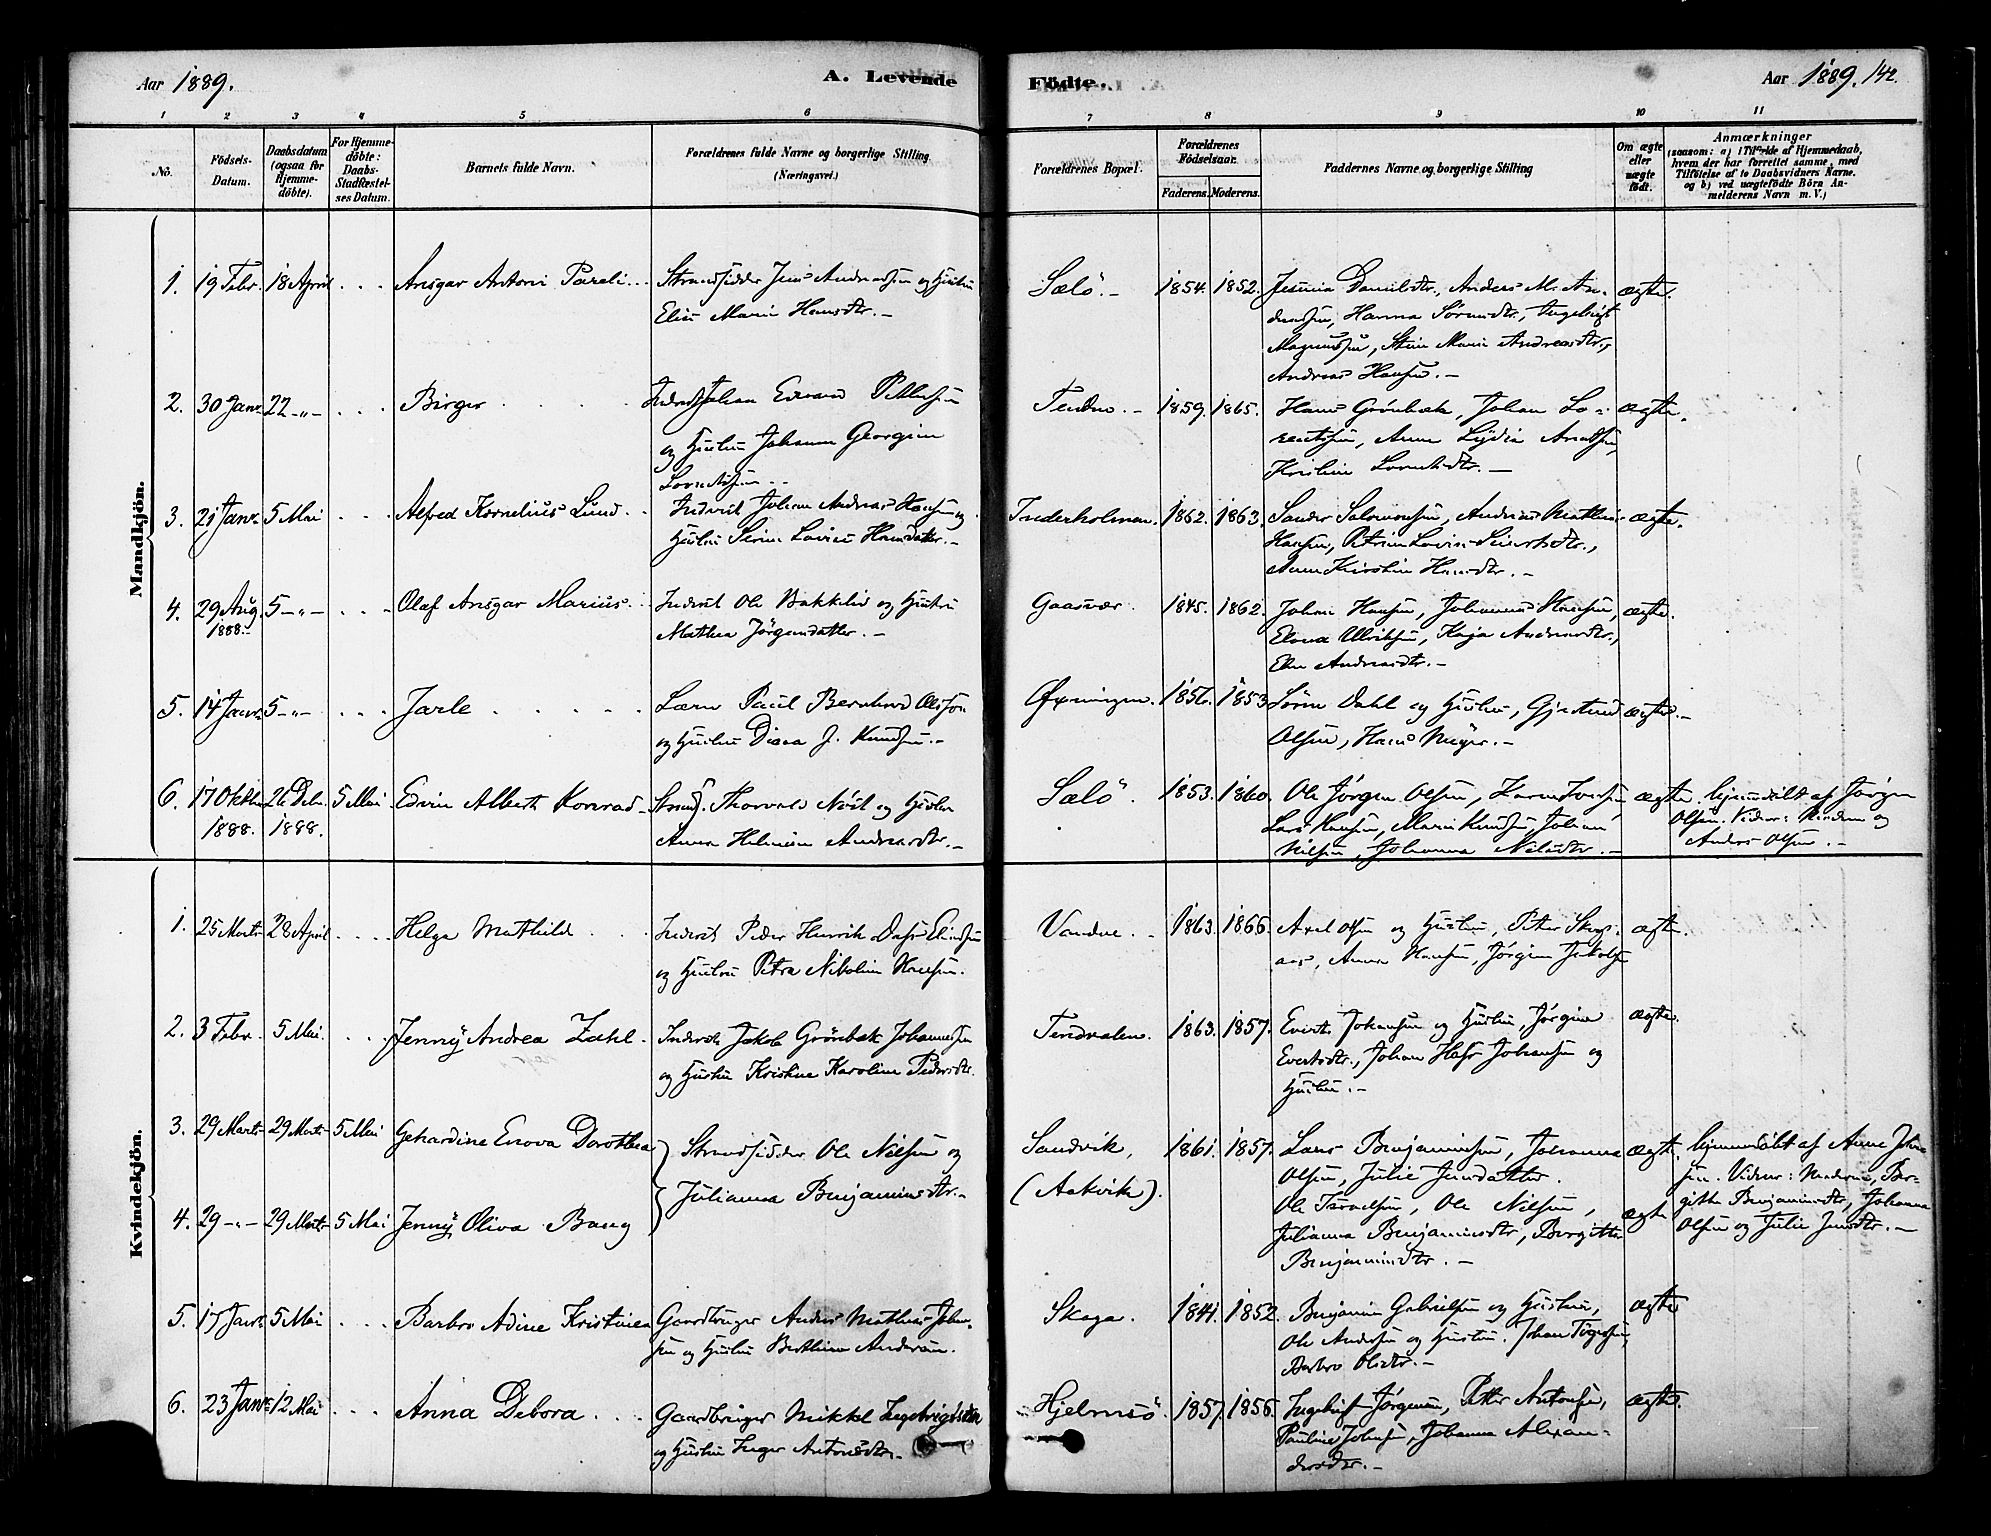 Aar 1889.
A. Levende
Födte.
Aar 1889. 142.
1 2 3 4 5 6 7 8 9 10 11
No.
Födsels-
Datum.
Daabsdatum
(ogsaa for
Hjemme-
döbte).
For Hjemme-
döbte:
Daabs-
Stadfæstel-
ses Datum.
Barnets fulde Navn.
Forældrenes fulde Navne og borgerlige Stilling
(Næringsvei.)
Forældrenes Bopæl.
Forældrenes
Födselsaar.
Faderens. Moderens.
Faddernes Navne og borgerlige Stilling
Om ægte
eller
uægte
födt.
Anmærkninger
(saasom: a) i Tilfælde af Hjemmedaab,
hvem der har forrettet samme, med
Tilföielse af to Daabsvidners Navne.
og b) ved uægtefödte Börn An-
melderens Navn m. V.)
Mandkjön.
1. 19 Febr. 18 April Ansgar Antoni Pareli Strandsidder Jens Andreassen og Hustru
Elise Marie Hansdtr.
Sælö. 1854. 1852. Jesmia Danielsdtr., Anders M. An-
dreassen, Hanna Sörensdtr., Ingebrigt
Magnussen, Marie Andreasdtr.,
Andreas Hansen.
ægte.
2. 30 Janr. 22 -"- Birger Inderst Johan Edvard Pettersen
og Hustru Johanna Georgine
Lorentssen
1859. 1865. Hans Grönbæk, Johan Lo-
rentsen, Anne Lydia
Kristine Lorentsdtr.
ægte.
3. 21 Janr. 5 Mai Alfred Kornelius Lund Inderst Johan Andreas Hansen og
Hustru Serine Lovise Hansdatter.
Inderholmen. 1862. 1863. Sander Salomonsen, Andreas Mathias
Hansen, Petrine Lovise
Anne Kirstine Hansdtr.
ægte.
4. 29 Aug. 1888. 5 -"- Olaf Ansgar Marius Inderst Ole Bakkelid og Hustru
Mathea Jörgensdatter.
Gaasvær. 1845. 1862. Johan Hansen, Johannes Hansen,
Elona Ulriksen, Kaja Andreasdtr.,
Andreasdtr.
ægte.
5. 14 Janr. 5 -"- Jarle Lærer Paul Bernhard Olsson
og Hustru Diana J. Knudsen.
Øxningen. 1856. 1853 Sören Dahl og Hustru, Gjertrud
Olsen, Hans Meyer.
ægte.
6. 17 Oktbr. 1888. 26 Debr. 1888. 5 Mai Edvin Albert Konrad Strands. Thorvald og Hustru
Anna Helmine Andreasdtr.
Sælö. 1853. 1860. Ole Jörgen Olsen, Karen
Lars Hansen, Marie Knudsen, Johan
Nilsen, Johanna Nilsdtr.
ægte. hjemmedöbt af Jörgen
Olsen. Vidner: Moderen og
Anders Olsen.
Kvindekjön.
1. 25 Marts 28 April Helga Mathilde Inderst Peder Henrik Dass
og Hustru Petra Nikoline Hansen.
Vandve. 1863. 1866. Axel Olsen og Hustru, Peter Skogs-
aas, Anna Hansen, Jörgine Jakobsen
ægte.
2. 3 Febr. 5 Mai Jenny Andrea Zahl Inderst Jakob Grönbæk Johannessen
og Hustru Kristine Karoline Pedersdtr.
Tendvalen. 1863. 1857. Evert Johansen og Hustru, Jörgine
Evertsdtr., Johan Johansen og
Hustru.
ægte.
3. 29 Marts 29 Marts 5 Mai Gerhardine Enova Dorothea Strandsidder Ole Nilsen og
Julianna Benjaminsdtr.
Sandvik,
(Aakvik).
1861. 1857. Lars Benjaminsen, Johanna
Olsen, Julie Jensdatter.
ægte. hjemmedöbt af Anne
Vidner: Moderen, Ber-
gitte Benjaminsdtr., Johanna
Olsen og Julie Jensdtr.
4. 29 -"- 29 Marts 5 Mai Jenny Oliva Bang
Ole Nilsen,
Julianna Benjaminsdtr, Bergitte
Benjaminsdtr.
ægte
5. 17 Janr. 5 Mai Barbro Adine Kristine Gaardbruger Anders Mathias Johan-
sen og Hustru Berthine Andersen.
Skaga. 1841. 1852. Benjamin Gabrielsen og Hustru,
Ole Andersen og Hustru. Johan
Barbro Olsdtr.
ægte
6. 23 Janr. 12 Mai Anna Debora Gaardbruger Mikkel Ingebrigtsen
og Hustru Inger Antonsdtr.
Hjelmsö. 1857. 1856. Ingebrigt Jörgensen, Petter Antonsen,
Pauline Johnsen, Johanna Alexan-
dersdtr.
ægte.